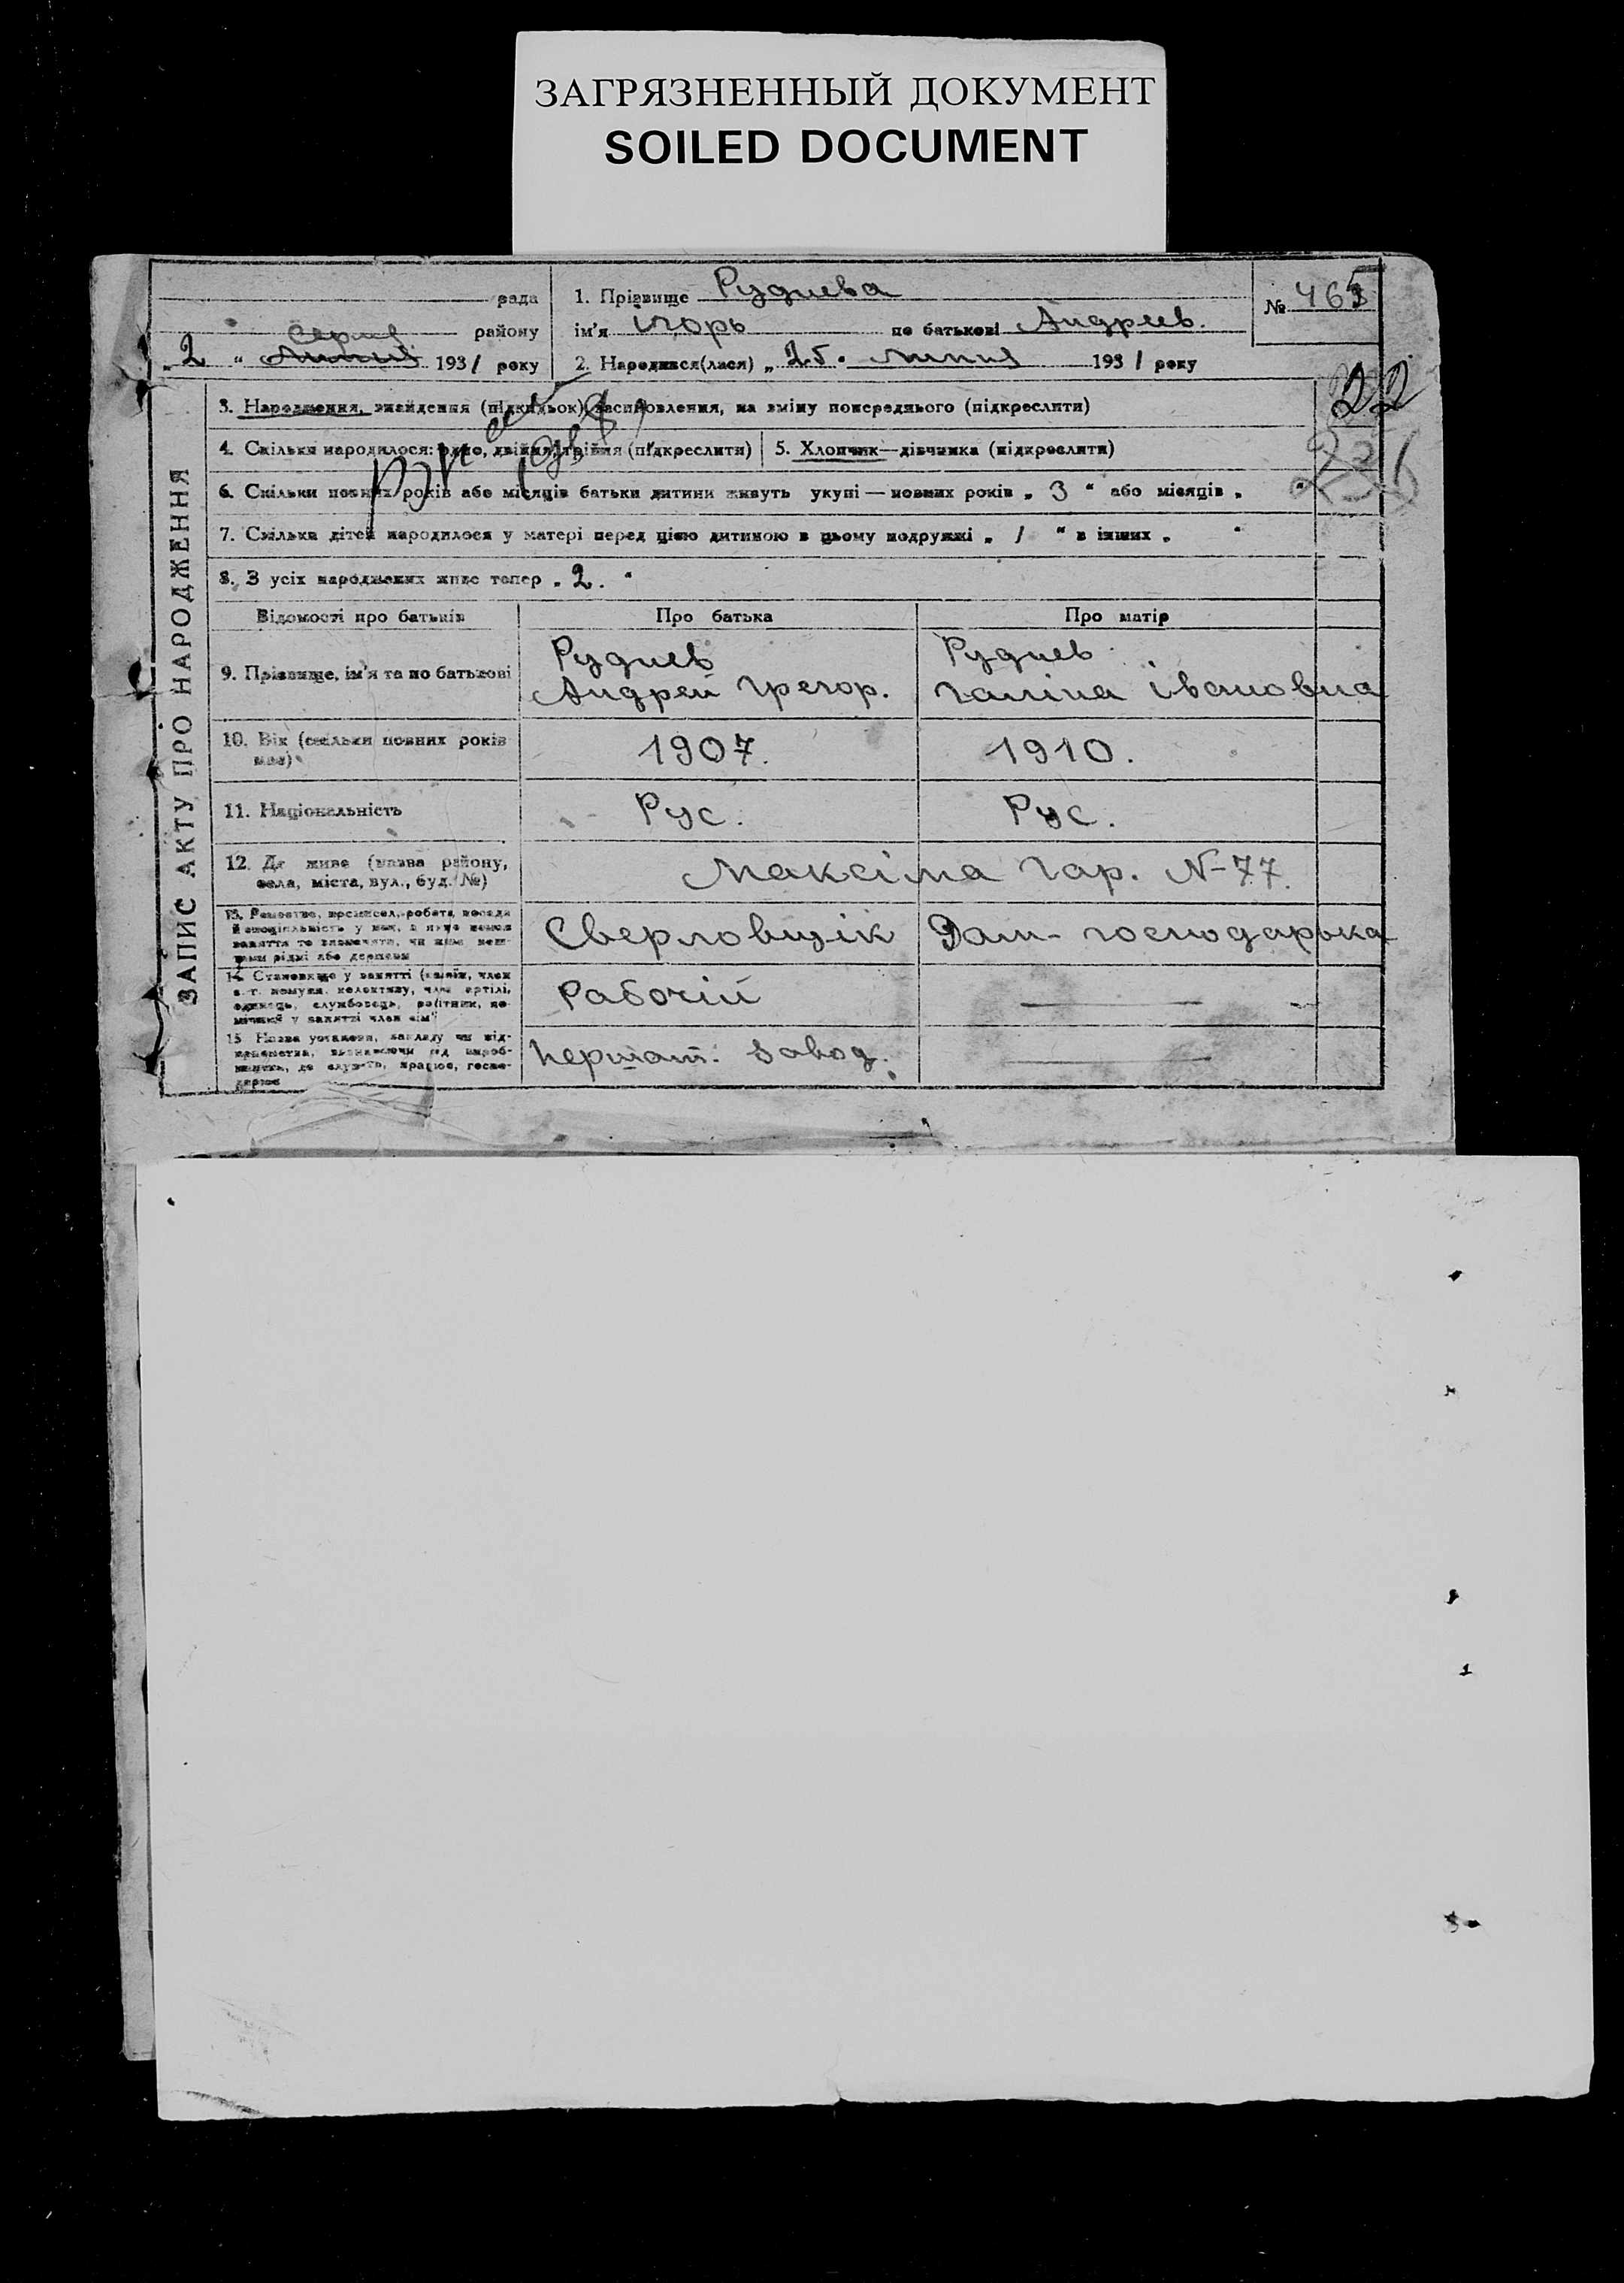 ЗАГРЯЗНЕННЫЙ ДОКУМЕНТ
SOILED DOCUMENT
рада
1. Прізвище Руднева
№ 465
Серпн. району
ім'я ігорь по батькові Андреев.
„ 2 “ Липня 1931 року
2. Народився(лася) „ 25. липня 1931 року
22
ЗАПИС АКТУ ПРО НАРОДЖЕННЯ
3. Народження, знайдення (підкидьок), засиновлення, на зміну попереднього (підкреслити)
4. Скільки народилося: одно, двійня, трійня (підкреслити)
5. Хлопчик—дівчинка (підкреслити)
6. Скільки повних років або місяців батьки дитини живуть укупі — повних років „ 3 “ або місяців „ “
7. Скільки дітей народилося у матері перед цією дитиною в цьому подружжі „ 1 “ в інших „ “
8. З усіх народжених живе тепер „ 2. “
Відомості про батьків
Про батька
Про матір
9. Прізвище, ім'я та по батькові
Руднев
Андрей Грегор.
Руднев
Галіна івановна
10. Вік (скільки повних років
має)
1907.
1910.
11. Національність
Рус.
Рус.
12. Де живе (назва району,
села, міста, вул., буд. №)
Максіма Гор. N-77.
13. Ремество, промисел, робота, посада
Сверловщік
Дом-господарька
14. Становище у занятті (хазяїн, член
с.-г. комуни, колективу, член артілі,
одинець, службовець, робітник, по-
Рабочій
15. Назва установи, закладу чи під-
завод.